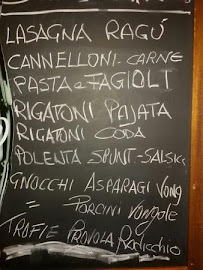 LASAGNA RAGÚ
CANNELLONI-CARNE
PASTA e FAGIOLI
RIGATONI PAJATA
RIGATONI CODA
POLENTA SPUNT-SALSICC
GNOCCHI ASPARAGI VONG
= PORCINI VONGOLE
TROFIE PROVOLA RADICCHIO